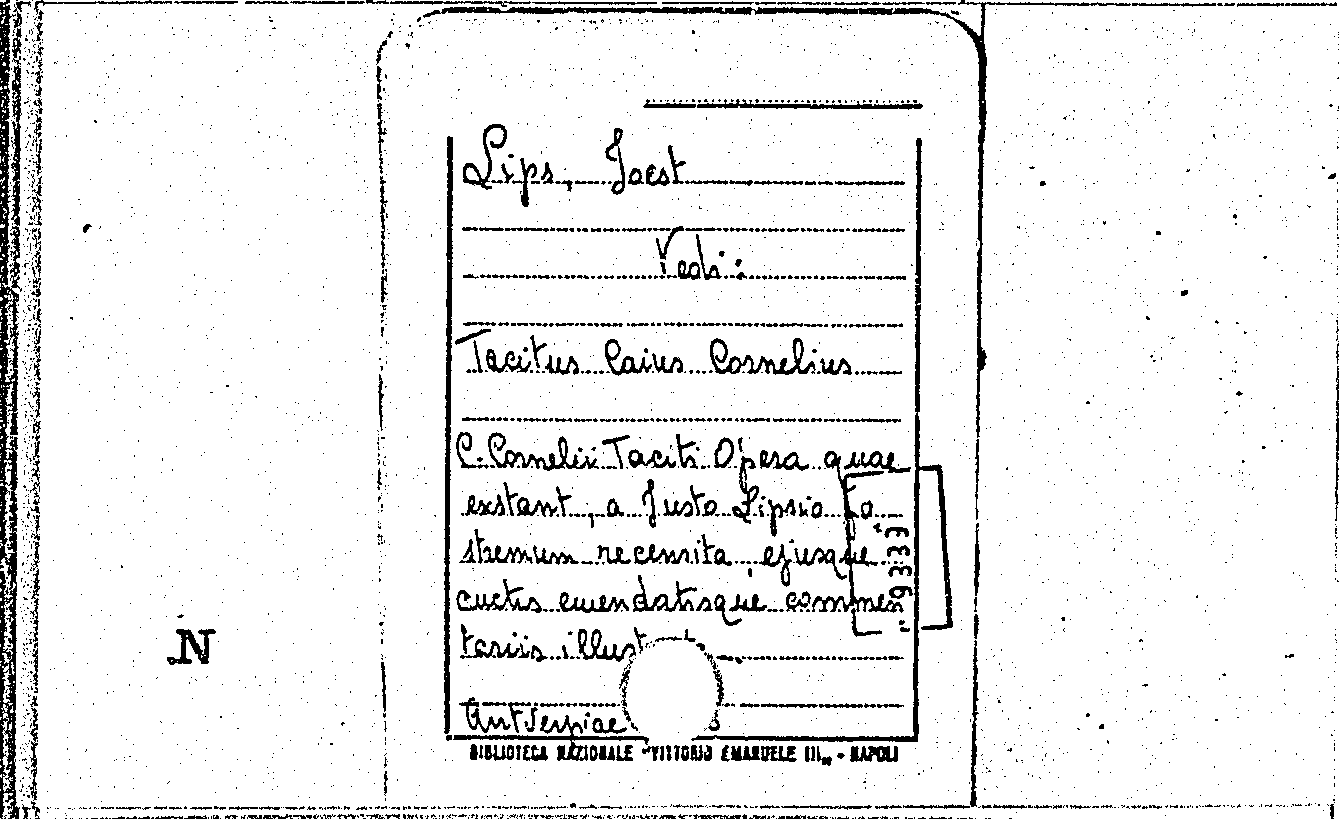 Lips, Joest
Vedi:
Tacitus Caius Cornelius
C. Cornelii Taciti Opera quae
exstant, a Justo Lipsio Po
stremum recensita, ejusque
auctis emendatisque commen
tariis illust
Antverpiae
BIBLIOTECA NAZIONALE "VITTORIO EMANUELE III„ - NAPOLI
9333
N